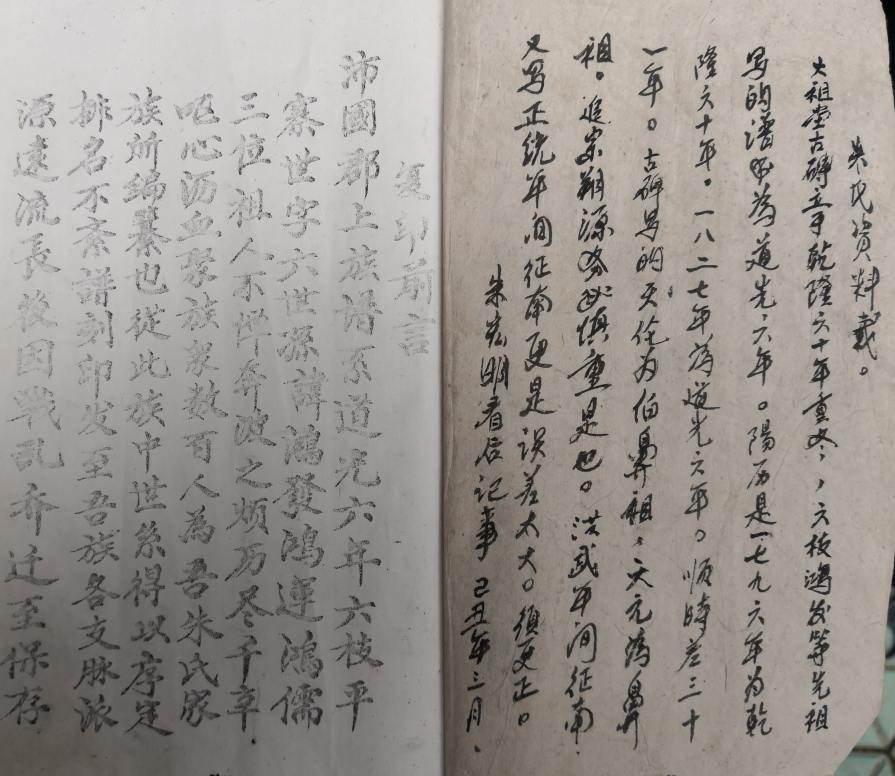 朱氏资料載。
大祖堂古碑立于乾隆六十年重修，，六枝鴻发等先祖
写的譜名為道光六年。陽历是一七九六年为乾
隆六十年。一八二七年為道光六年。順時差三十
一年。古碑写的天佐为伯鼻祖，天元為鼻
祖。追宗朔源务必慎重是也。洪武年间征南
又写正统年间征南更是误差太大。須更正。
朱宏明看后记事 己丑年三月、
复印前言
沛國郡上族譜系道光六年六枝平
寨世字六世孫諱鴻發鴻運鴻儒
三位祖人不惮奔波之煩历尽千辛
呕心沥血聚族衆数百人為吾朱氏家
族所编纂也從此族中世系得以序定
排名不紊譜刻印发至吾族各支脉派
源遠流長後因戰乱乔迁至保存